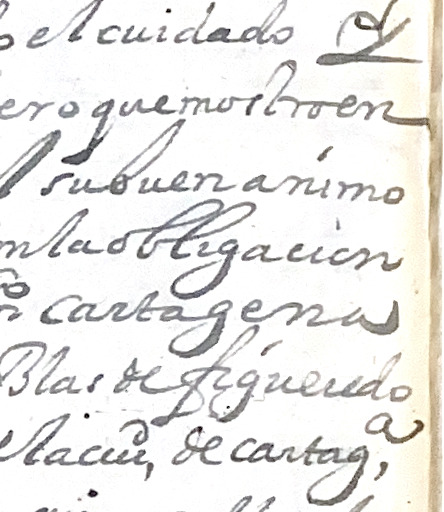 el cuidado y
ero que mostro en
su buen animo
en la obligacion
cartagena
Blas de figueredo
de cartag,ᵃ